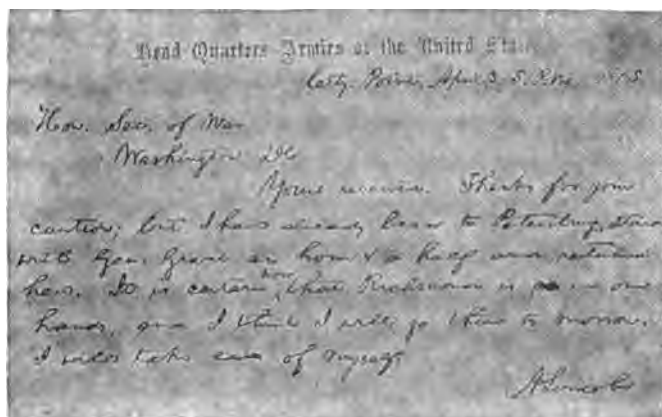 Head Quarters Armies of the United States,
City Point, April 3. 5. P.M. 1865
Hon. Sec. of War
Washington D.C.
Yours received. Thanks for your
caution; but I have already been to Petersburg, staid
with Gen. Grant an hour & a half and returned
here. It is certain now that Richmond is in our
hands, and I think I will go there to-morrow.
I will take care of myself.
A. Lincoln